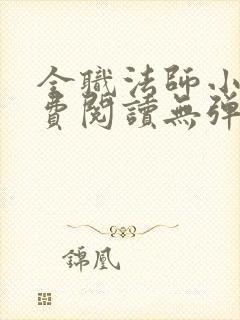 全職法師小
費閱讀無彈
錦凰